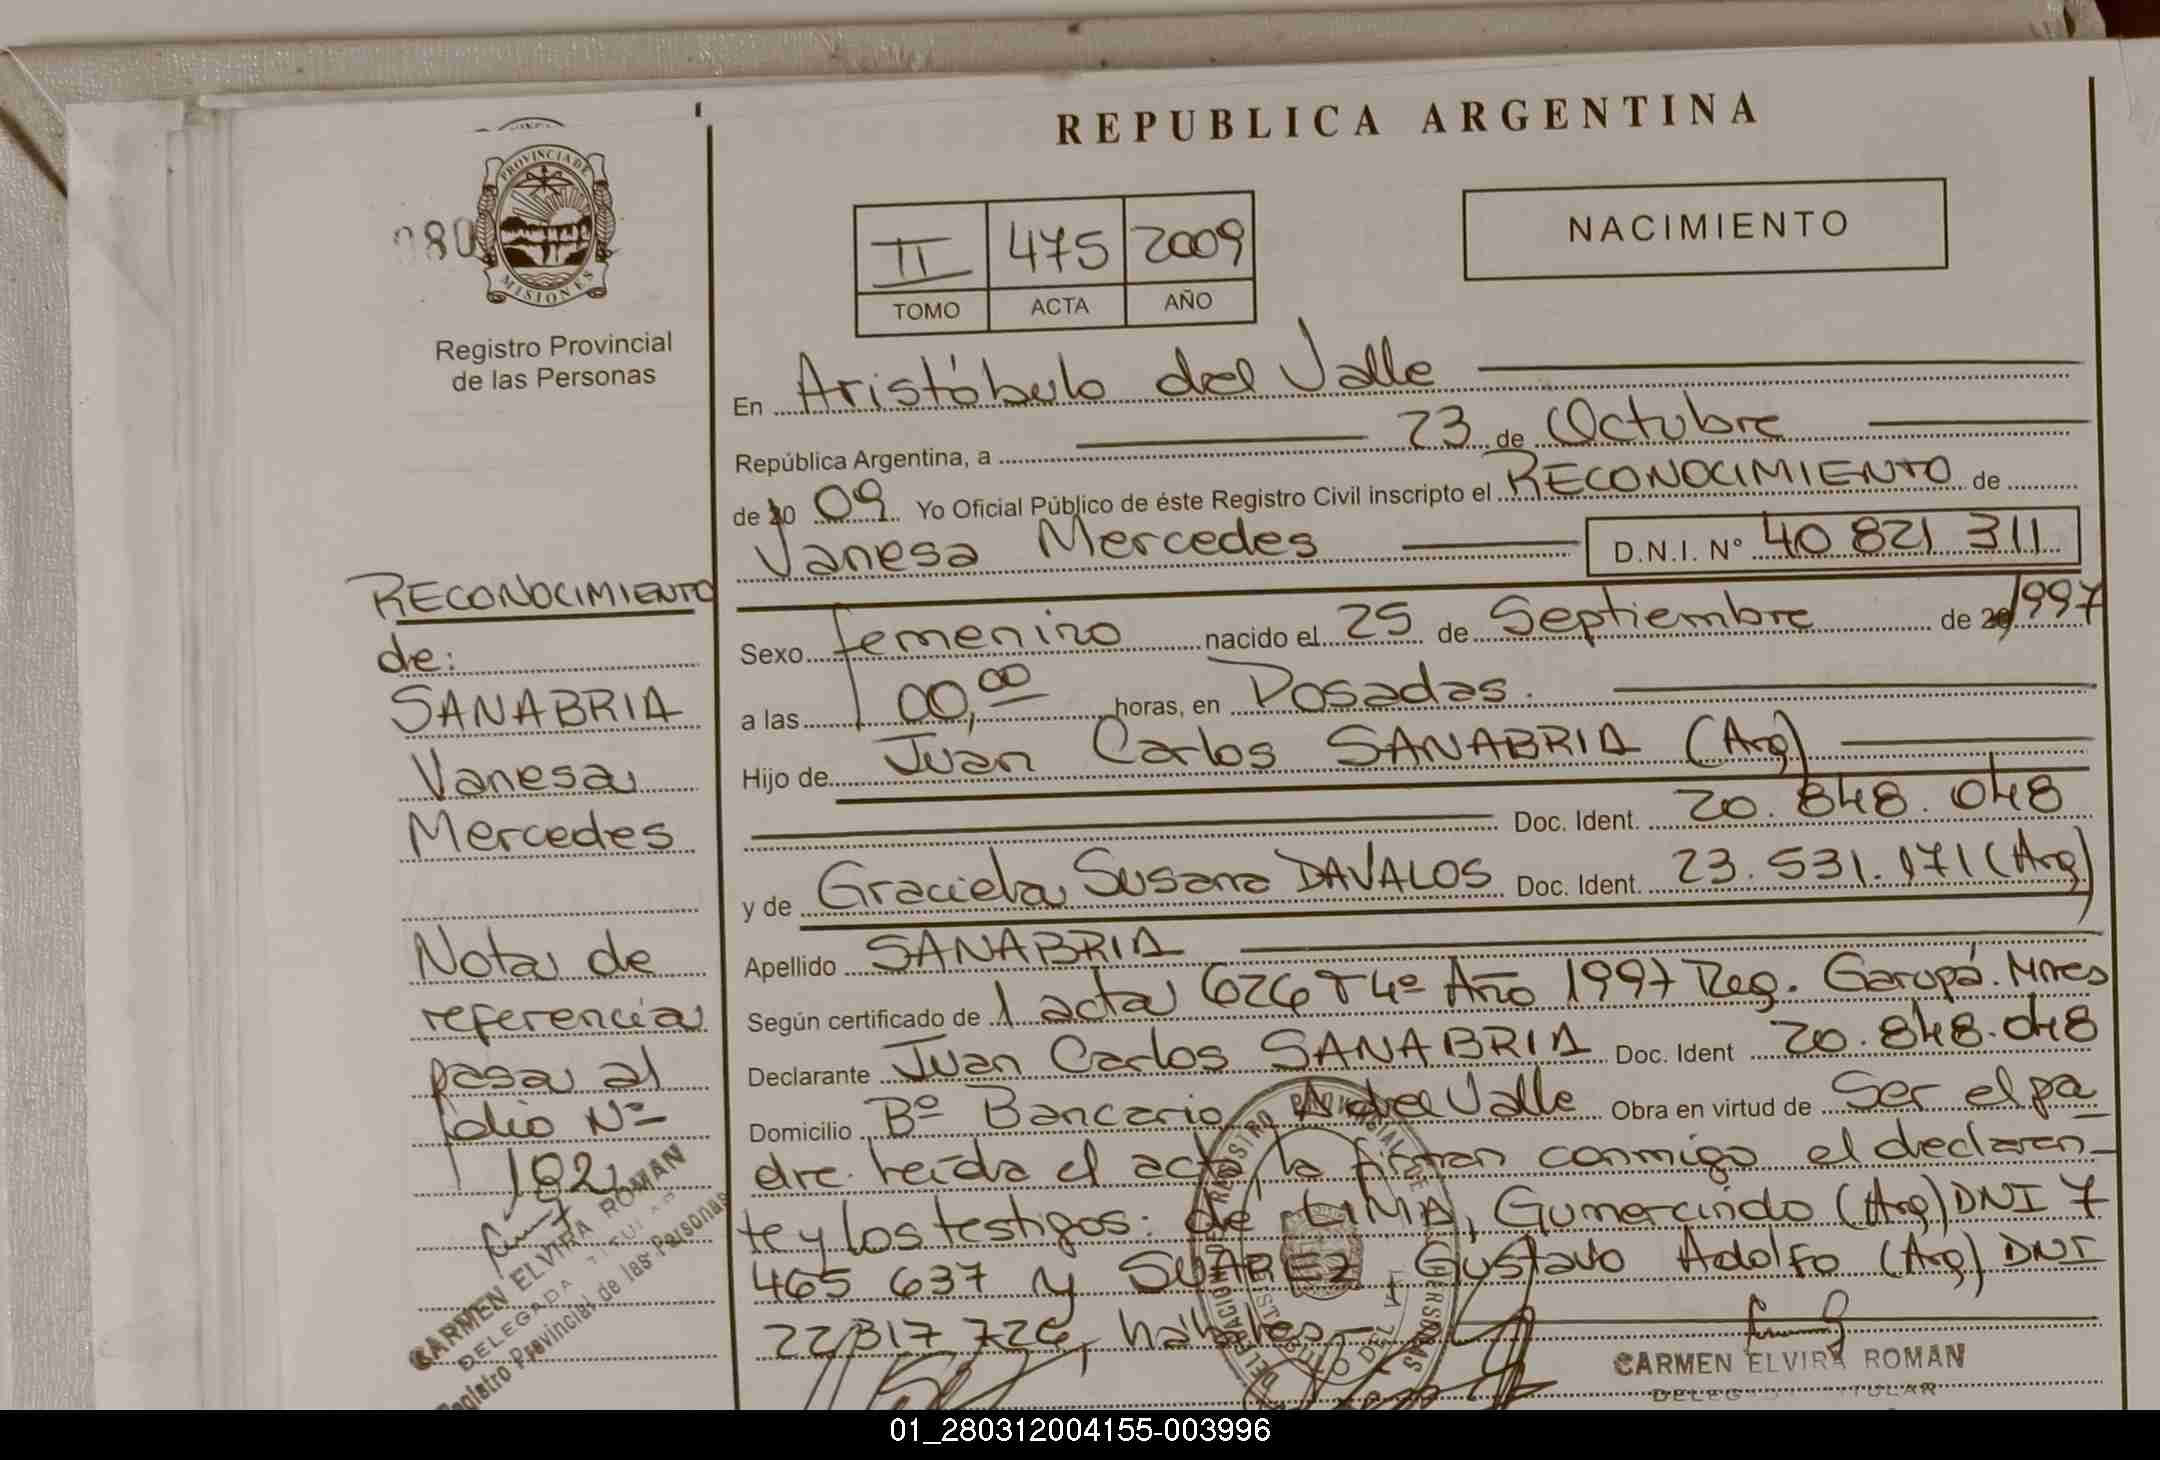 REPUBLICA ARGENTINA
PROVINCIA DE
MISIONES
080
Registro Provincial
de las Personas
II 475 2009
TOMO ACTA AÑO
NACIMIENTO
En Aristóbulo del Valle
República Argentina, a 23 de Octubre
de 20 09 Yo Oficial Público de éste Registro Civil inscripto el RECONOCIMIENTO de
Vanesa Mercedes D.N.I. Nº 40 821 311
Sexo femenino nacido el 25 de Septiembre de 1997
a las 00,00 horas, en Posadas.
Hijo de Juan Carlos SANABRIA (Arg)
Doc. Ident. 20.848.048
y de Graciela Susana DAVALOS Doc. Ident. 23.531.171 (Arg)
Apellido SANABRIA
Según certificado de 1 acta 626 Tº 4º Año 1997 Reg. Garupá. Mnes
Declarante Juan Carlos SANABRIA Doc. Ident 20.848.048
Domicilio Bº Bancario A del Valle Obra en virtud de Ser el pa
dre. leída el acta, la firman conmigo el declaran-
te y los testigos: de LIMA, Gumercindo (Arg) DNI 7
465 637 y SUAREZ, Gustavo Adolfo (Arg) DNI
22 817 726, hábiles.-
CARMEN ELVIRA ROMAN
DELEGADA TITULAR
RECONOCIMIENTO
de:
SANABRIA
Vanesa
Mercedes
Nota de
referencia
pasa al
folio Nº
182
CARMEN ELVIRA ROMAN
DELEGADA TITULAR
Registro Provincial de las Personas
01_280312004155-003996